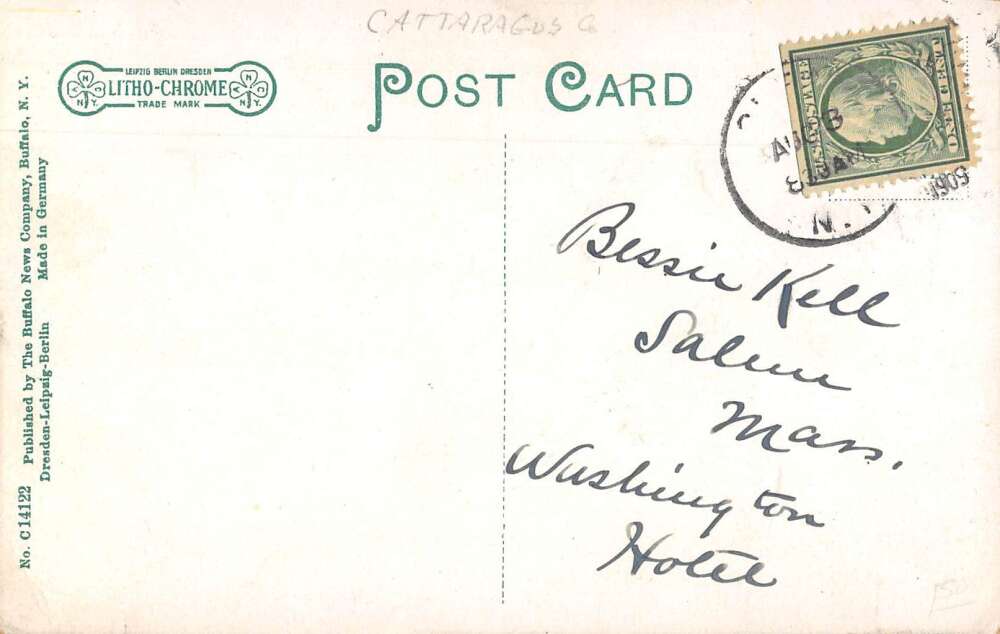 CATTARAGUS Co
LEIPZIG BERLIN DRESDEN
LITHO-CHROME
TRADE MARK
N
N. Y.
N
N. Y.
POST CARD
U.S. POSTAGE
ONE CENT
AUG 3
8 30 AM
N.Y.
1909
Bessie Kell
Salem
Mass.
Washington
Hotel
No. C 14122 Published by The Buffalo News Company, Buffalo, N. Y.
Dresden-Leipzig-Berlin Made in Germany